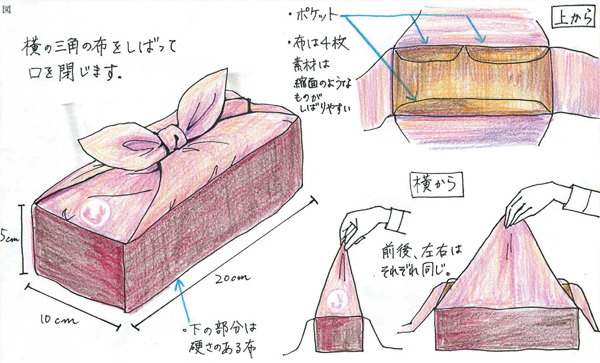 図
横の三角の布をしばって
口を閉じます。
5cm
10cm
20cm
・下の部分は
硬さのある布
・ポケット
・布は4枚
素材は
縮面のような
ものが
しばりやすい
上から
横から
前後、左右は
それぞれ同じ。